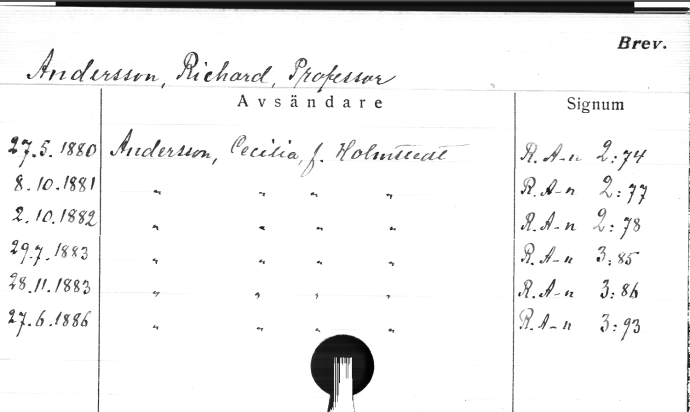 Brev.
Andersson, Richard, Professor
Avsändare Signum
27.5.1880 Andersson, Cecilia, f. Holmstedt R. A-n 2:74
8.10.1881 " " " " R. A-n 2:77
2.10.1882 " " " " R. A-n 2:78
29.7.1883 " " " " R. A-n 3:85
28.11.1883 " " " " R. A-n 3:86
27.6.1886 " " " " R. A-n 3:93